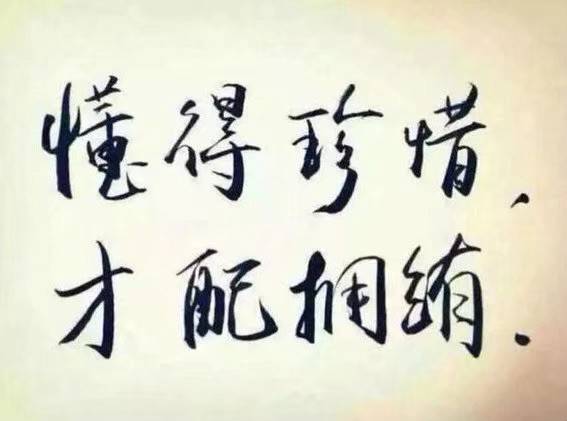 懂得珍惜，
才配拥有.